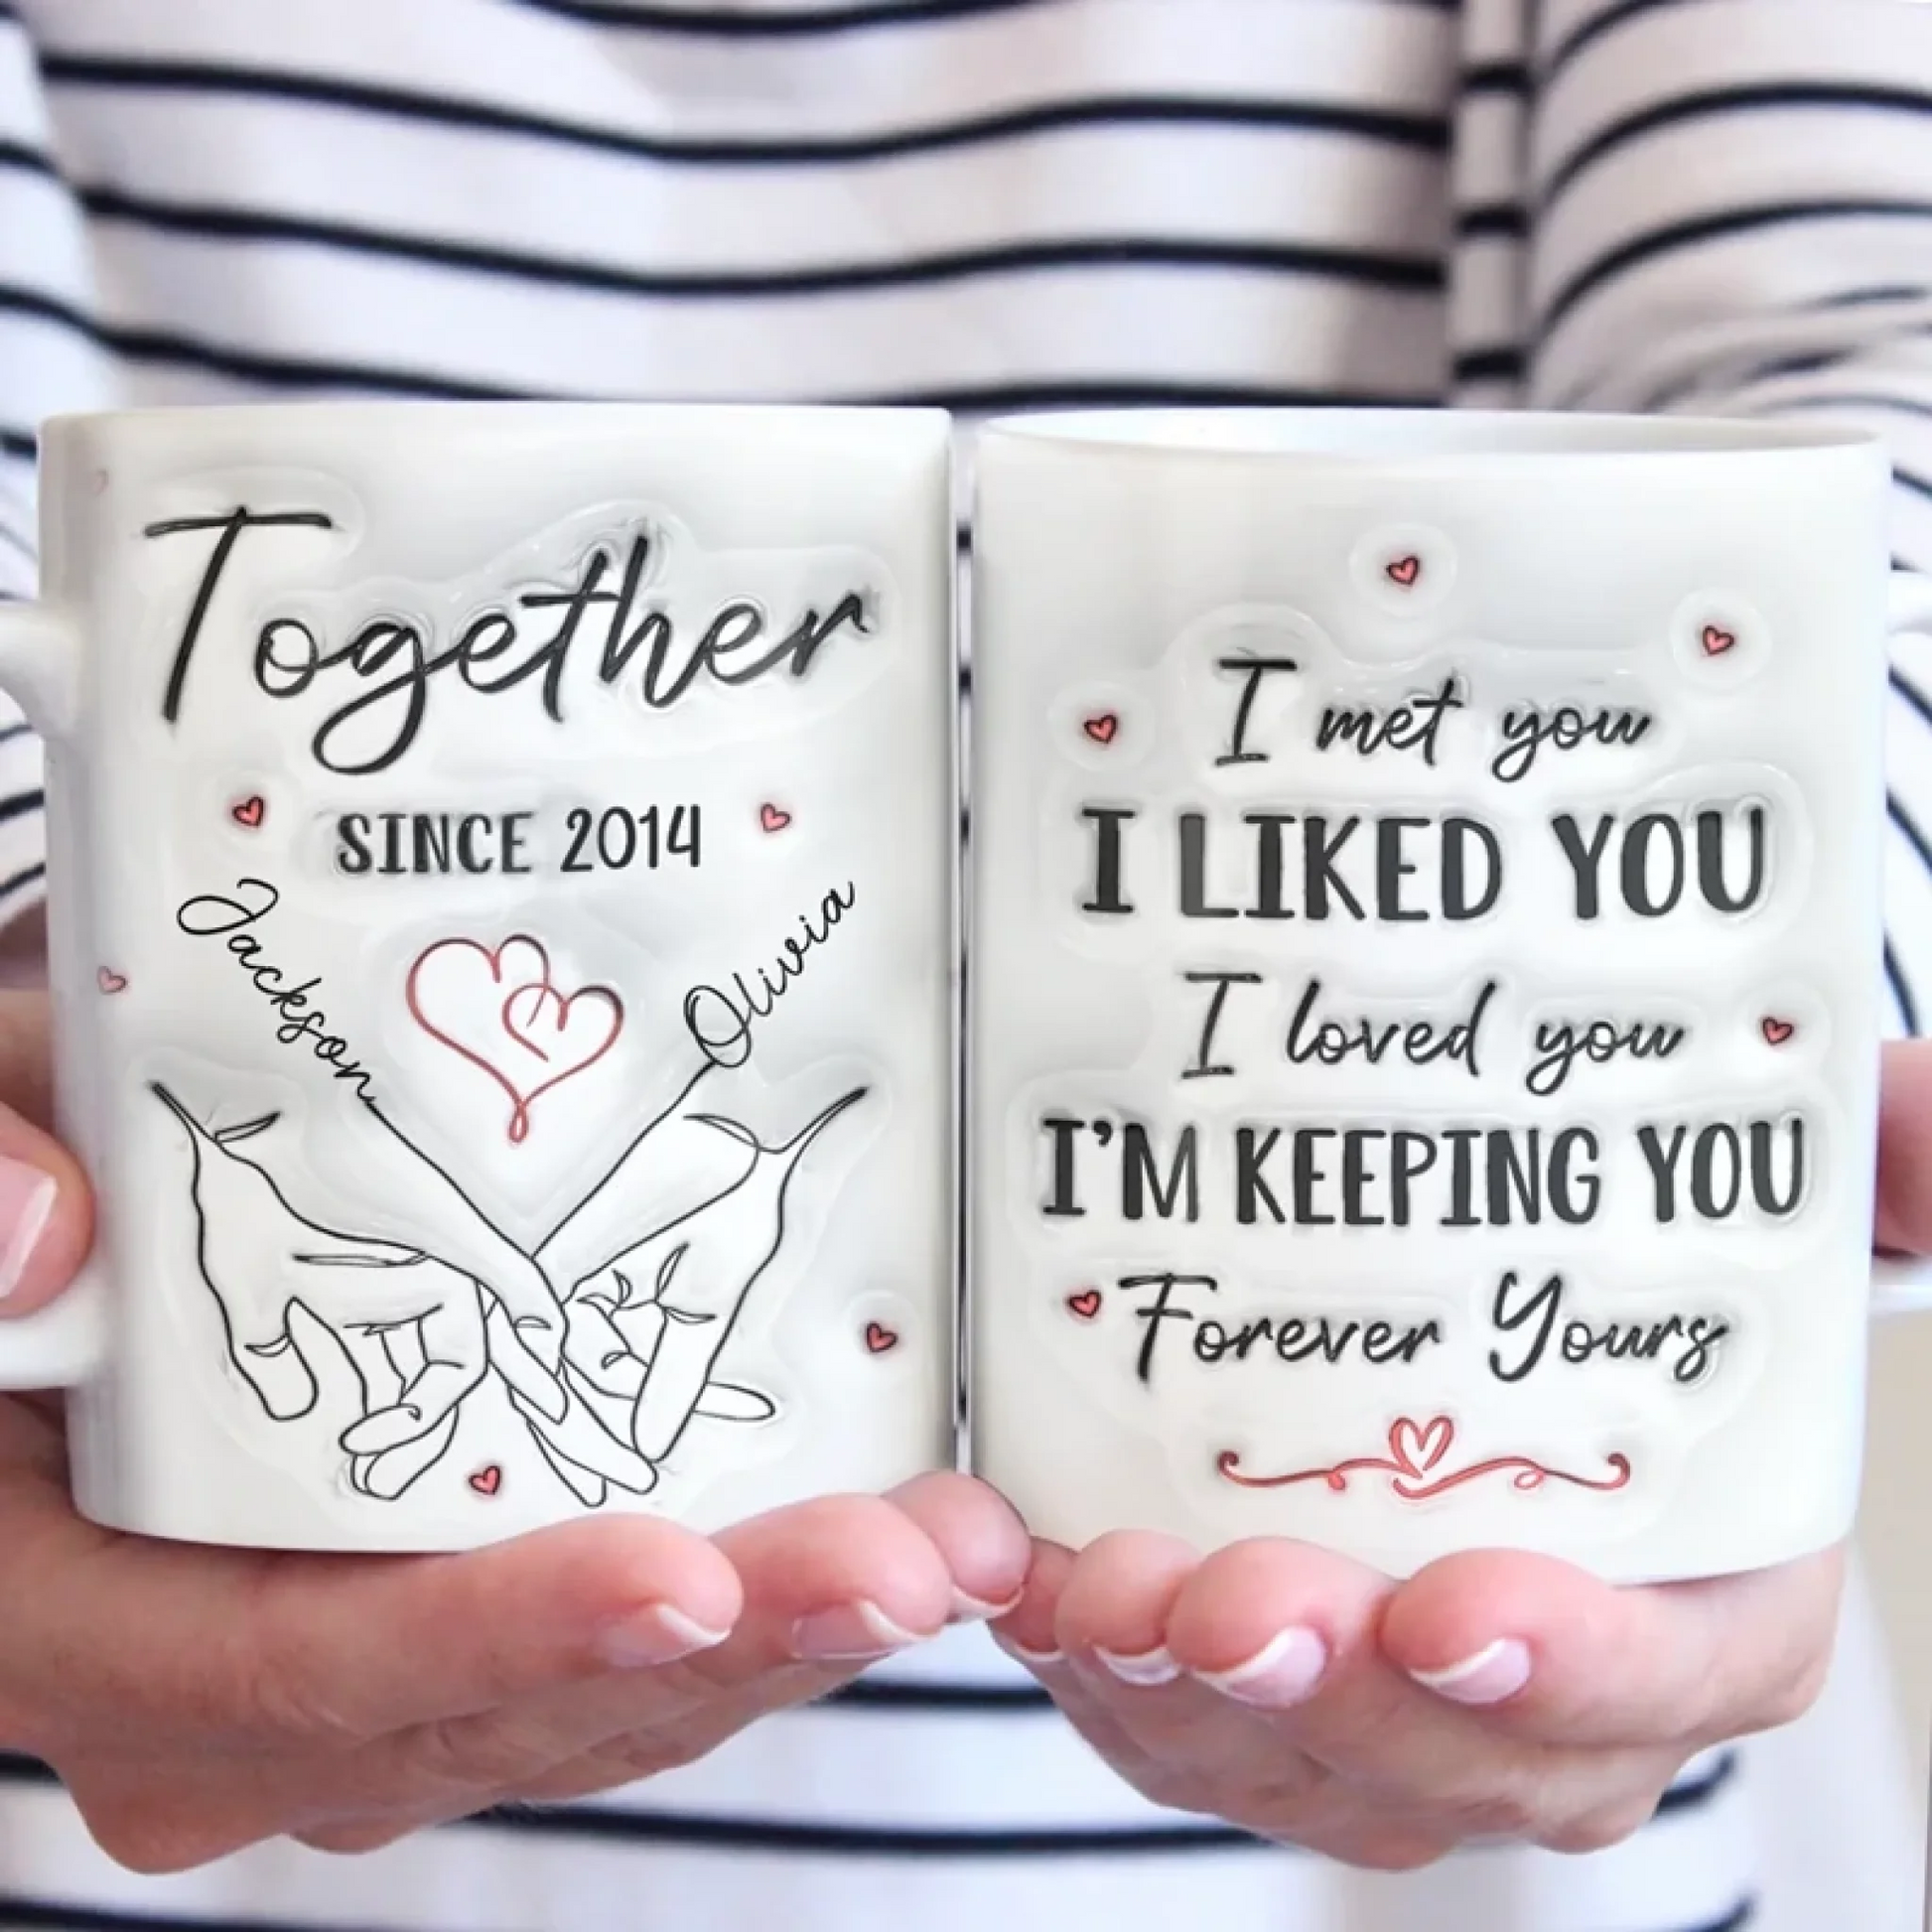 Together
SINCE 2014
Jackson
Olivia
I met you
I LIKED YOU
I loved you
I'M KEEPING YOU
Forever Yours